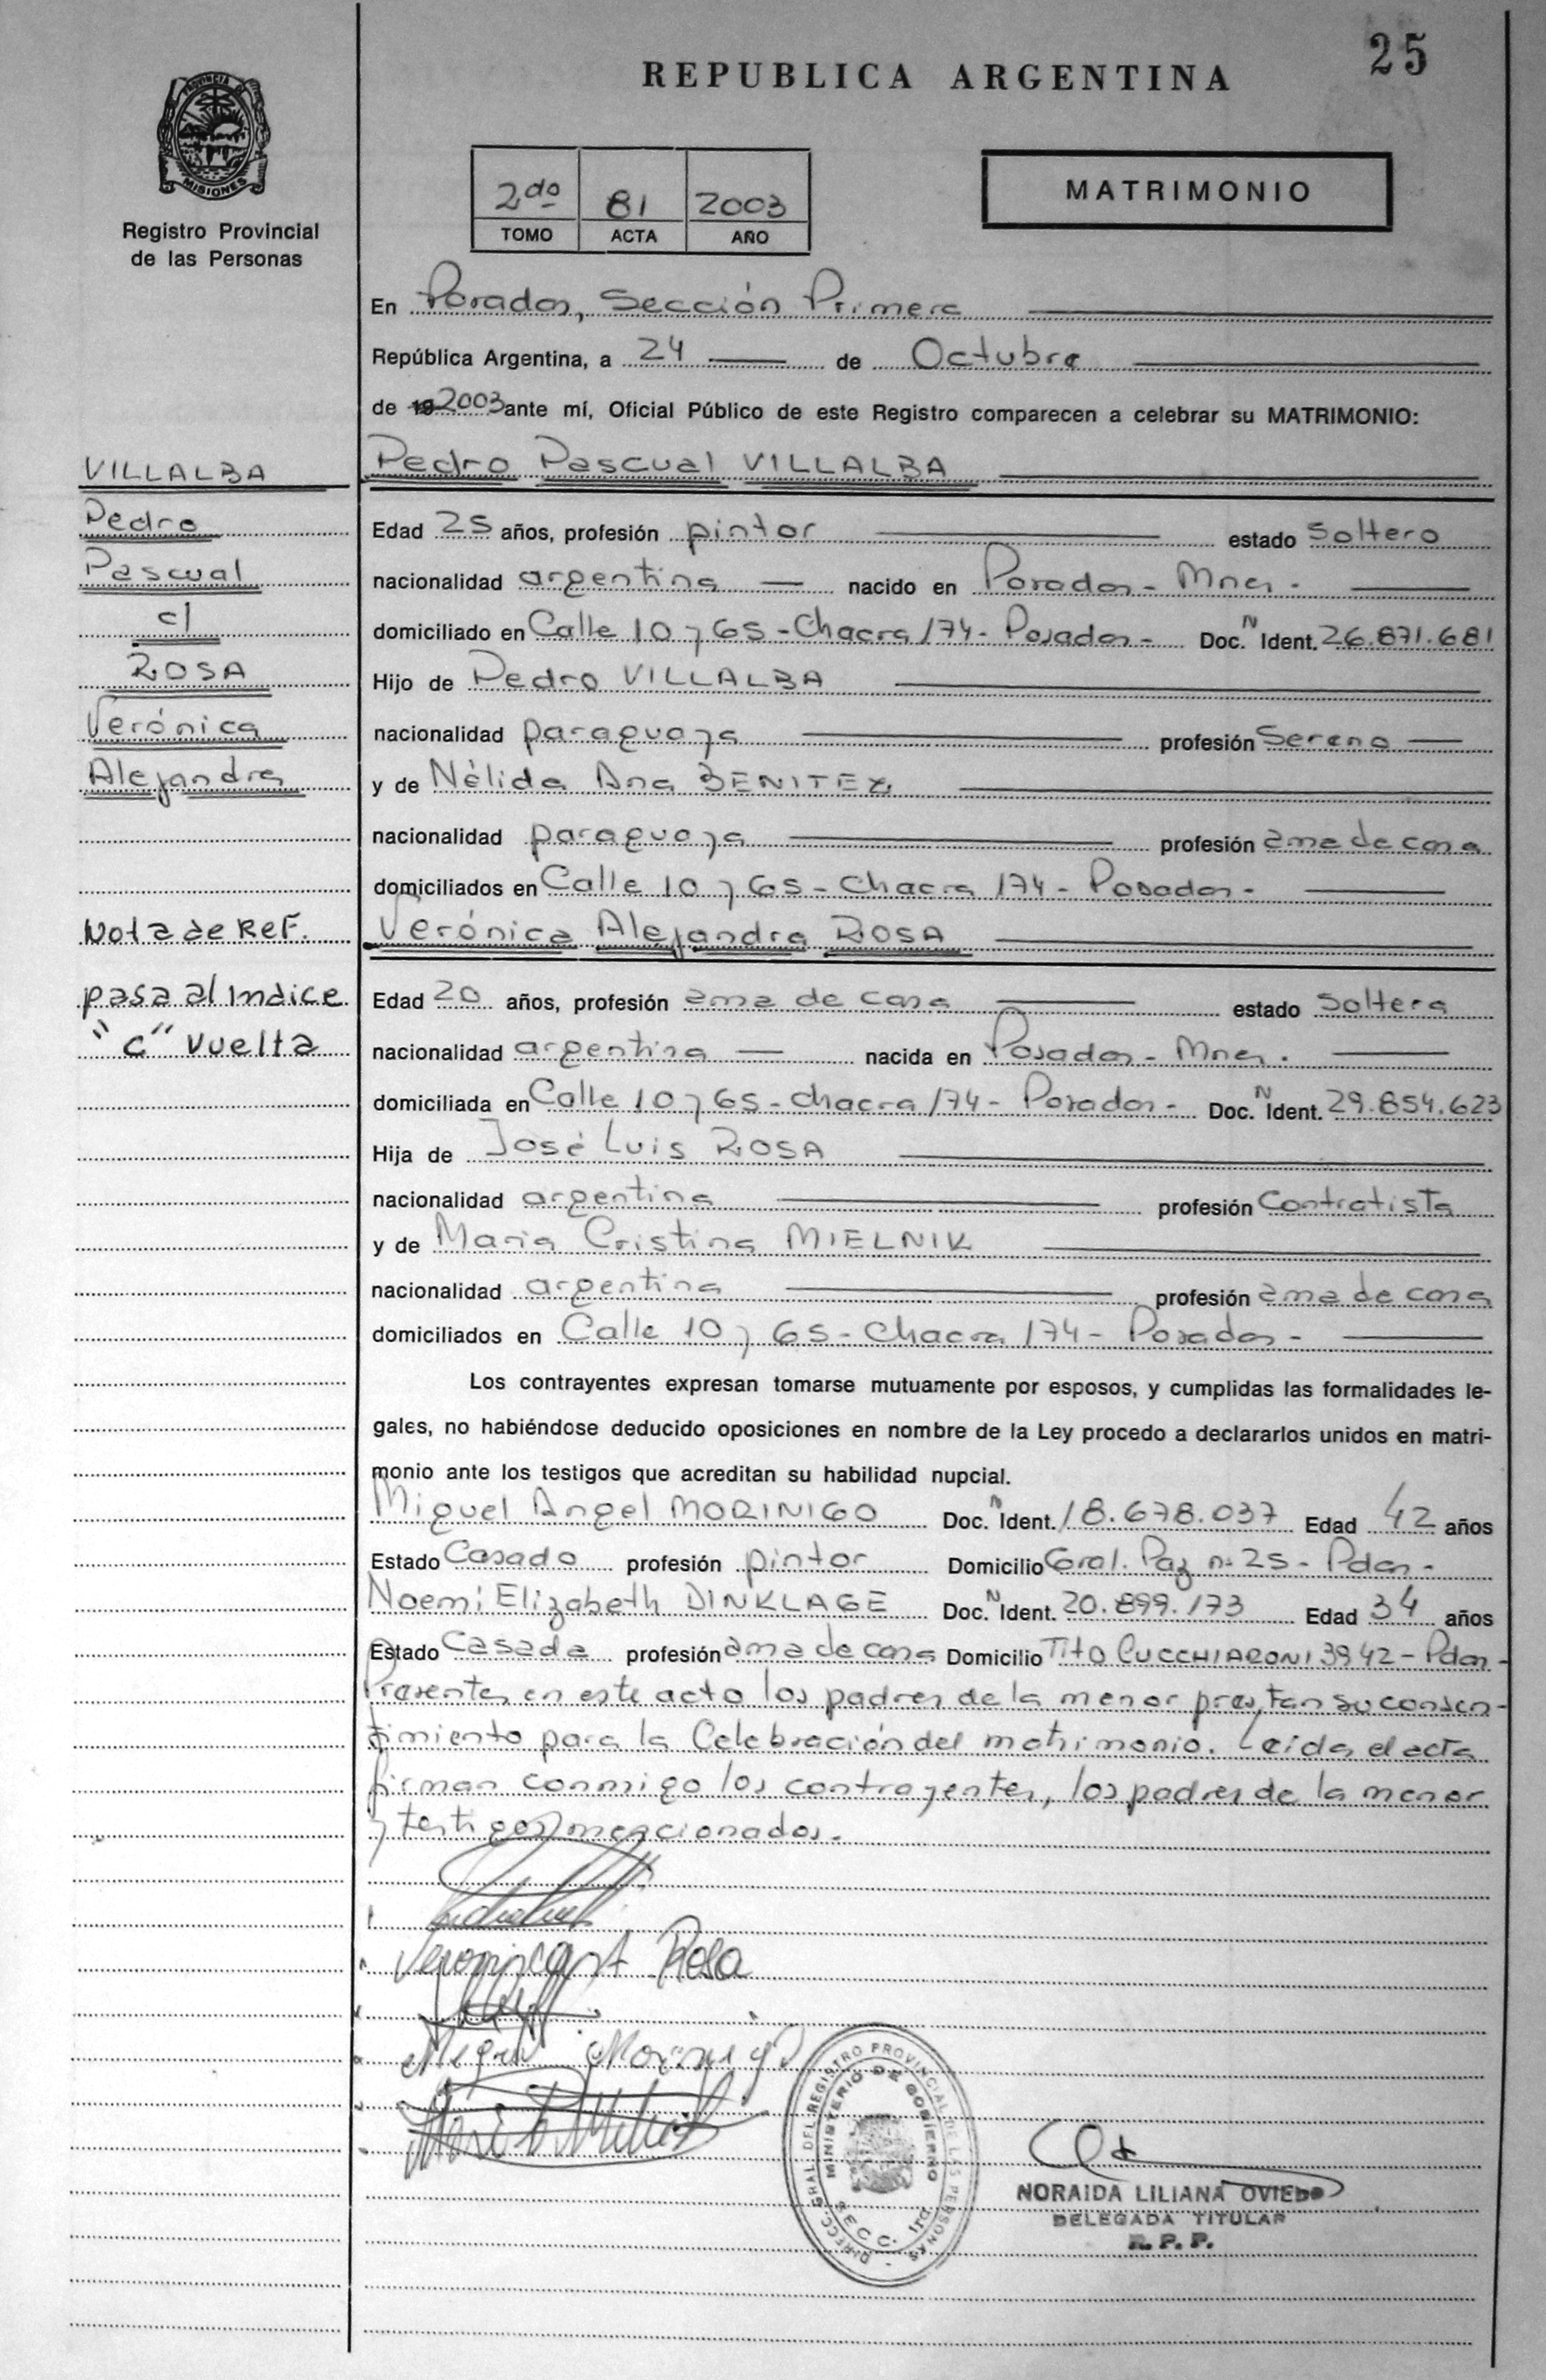 25
REPUBLICA ARGENTINA
PROVINCIA DE
MISIONES
Registro Provincial
de las Personas
2do 81 2003
TOMO ACTA AÑO
MATRIMONIO
En Posadas, Sección Primera
República Argentina, a 24 de Octubre
de 19 2003 ante mí, Oficial Público de este Registro comparecen a celebrar su MATRIMONIO:
VILLALBA
Pedro
Pascual
c/
ROSA
Verónica
Alejandra
Nota de Ref.
pasa al Indice
"C" Vuelta
Pedro Pascual VILLALBA
Edad 25 años, profesión pintor estado Soltero
nacionalidad argentina nacido en Posadas - Mnes.
domiciliado en Calle 10 y 65 - Chacra 174 - Posadas - Doc. N Ident. 26.871.681
Hijo de Pedro VILLALBA
nacionalidad paraguaya profesión Sereno
y de Nélida Ana BENITEZ
nacionalidad paraguaya profesión ama de casa
domiciliados en Calle 10 y 65 - Chacra 174 - Posadas -
Verónica Alejandra ROSA
Edad 20 años, profesión ama de casa estado Soltera
nacionalidad argentina nacida en Posadas - Mnes.
domiciliada en Calle 10 y 65 - chacra 174 - Posadas - Doc. N Ident. 29.854.623
Hija de José Luis ROSA
nacionalidad argentina profesión Contratista
y de Maria Cristina MIELNIK
nacionalidad argentina profesión ama de casa
domiciliados en Calle 10 y 65 - Chacra 174 - Posadas -
Los contrayentes expresan tomarse mutuamente por esposos, y cumplidas las formalidades le-
gales, no habiéndose deducido oposiciones en nombre de la Ley procedo a declararlos unidos en matri-
monio ante los testigos que acreditan su habilidad nupcial.
Miguel Angel MORINIGO Doc. N Ident. 18.678.037 Edad 42 años
Estado Casado profesión pintor Domicilio Gral. Paz n° 25 - Pdas -
Noemi Elizabeth DINKLAGE Doc. N Ident. 20.899.173 Edad 34 años
Estado Casada profesión ama de casa Domicilio Tito CUCCHIARONI 3942 - Pdas -
Presentes en este acto los padres de la menor prestan su consen-
timiento para la Celebración del matrimonio. Leida el acta
firman conmigo los contrayentes, los padres de la menor
y testigos mencionados.
Rosa
Miguel Morinigo
DIRECC. GRAL. DEL REGISTRO PROVINCIAL DE LAS PERSONAS
MINISTERIO DE GOBIERNO
SECC. 1ra
NORAIDA LILIANA OVIEDO
DELEGADA TITULAR
R. P. P.